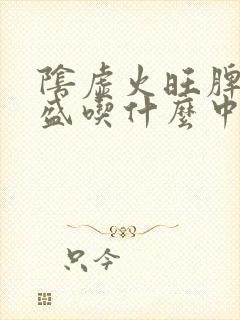 陰虛火旺脾
盛喫什麼中
只今